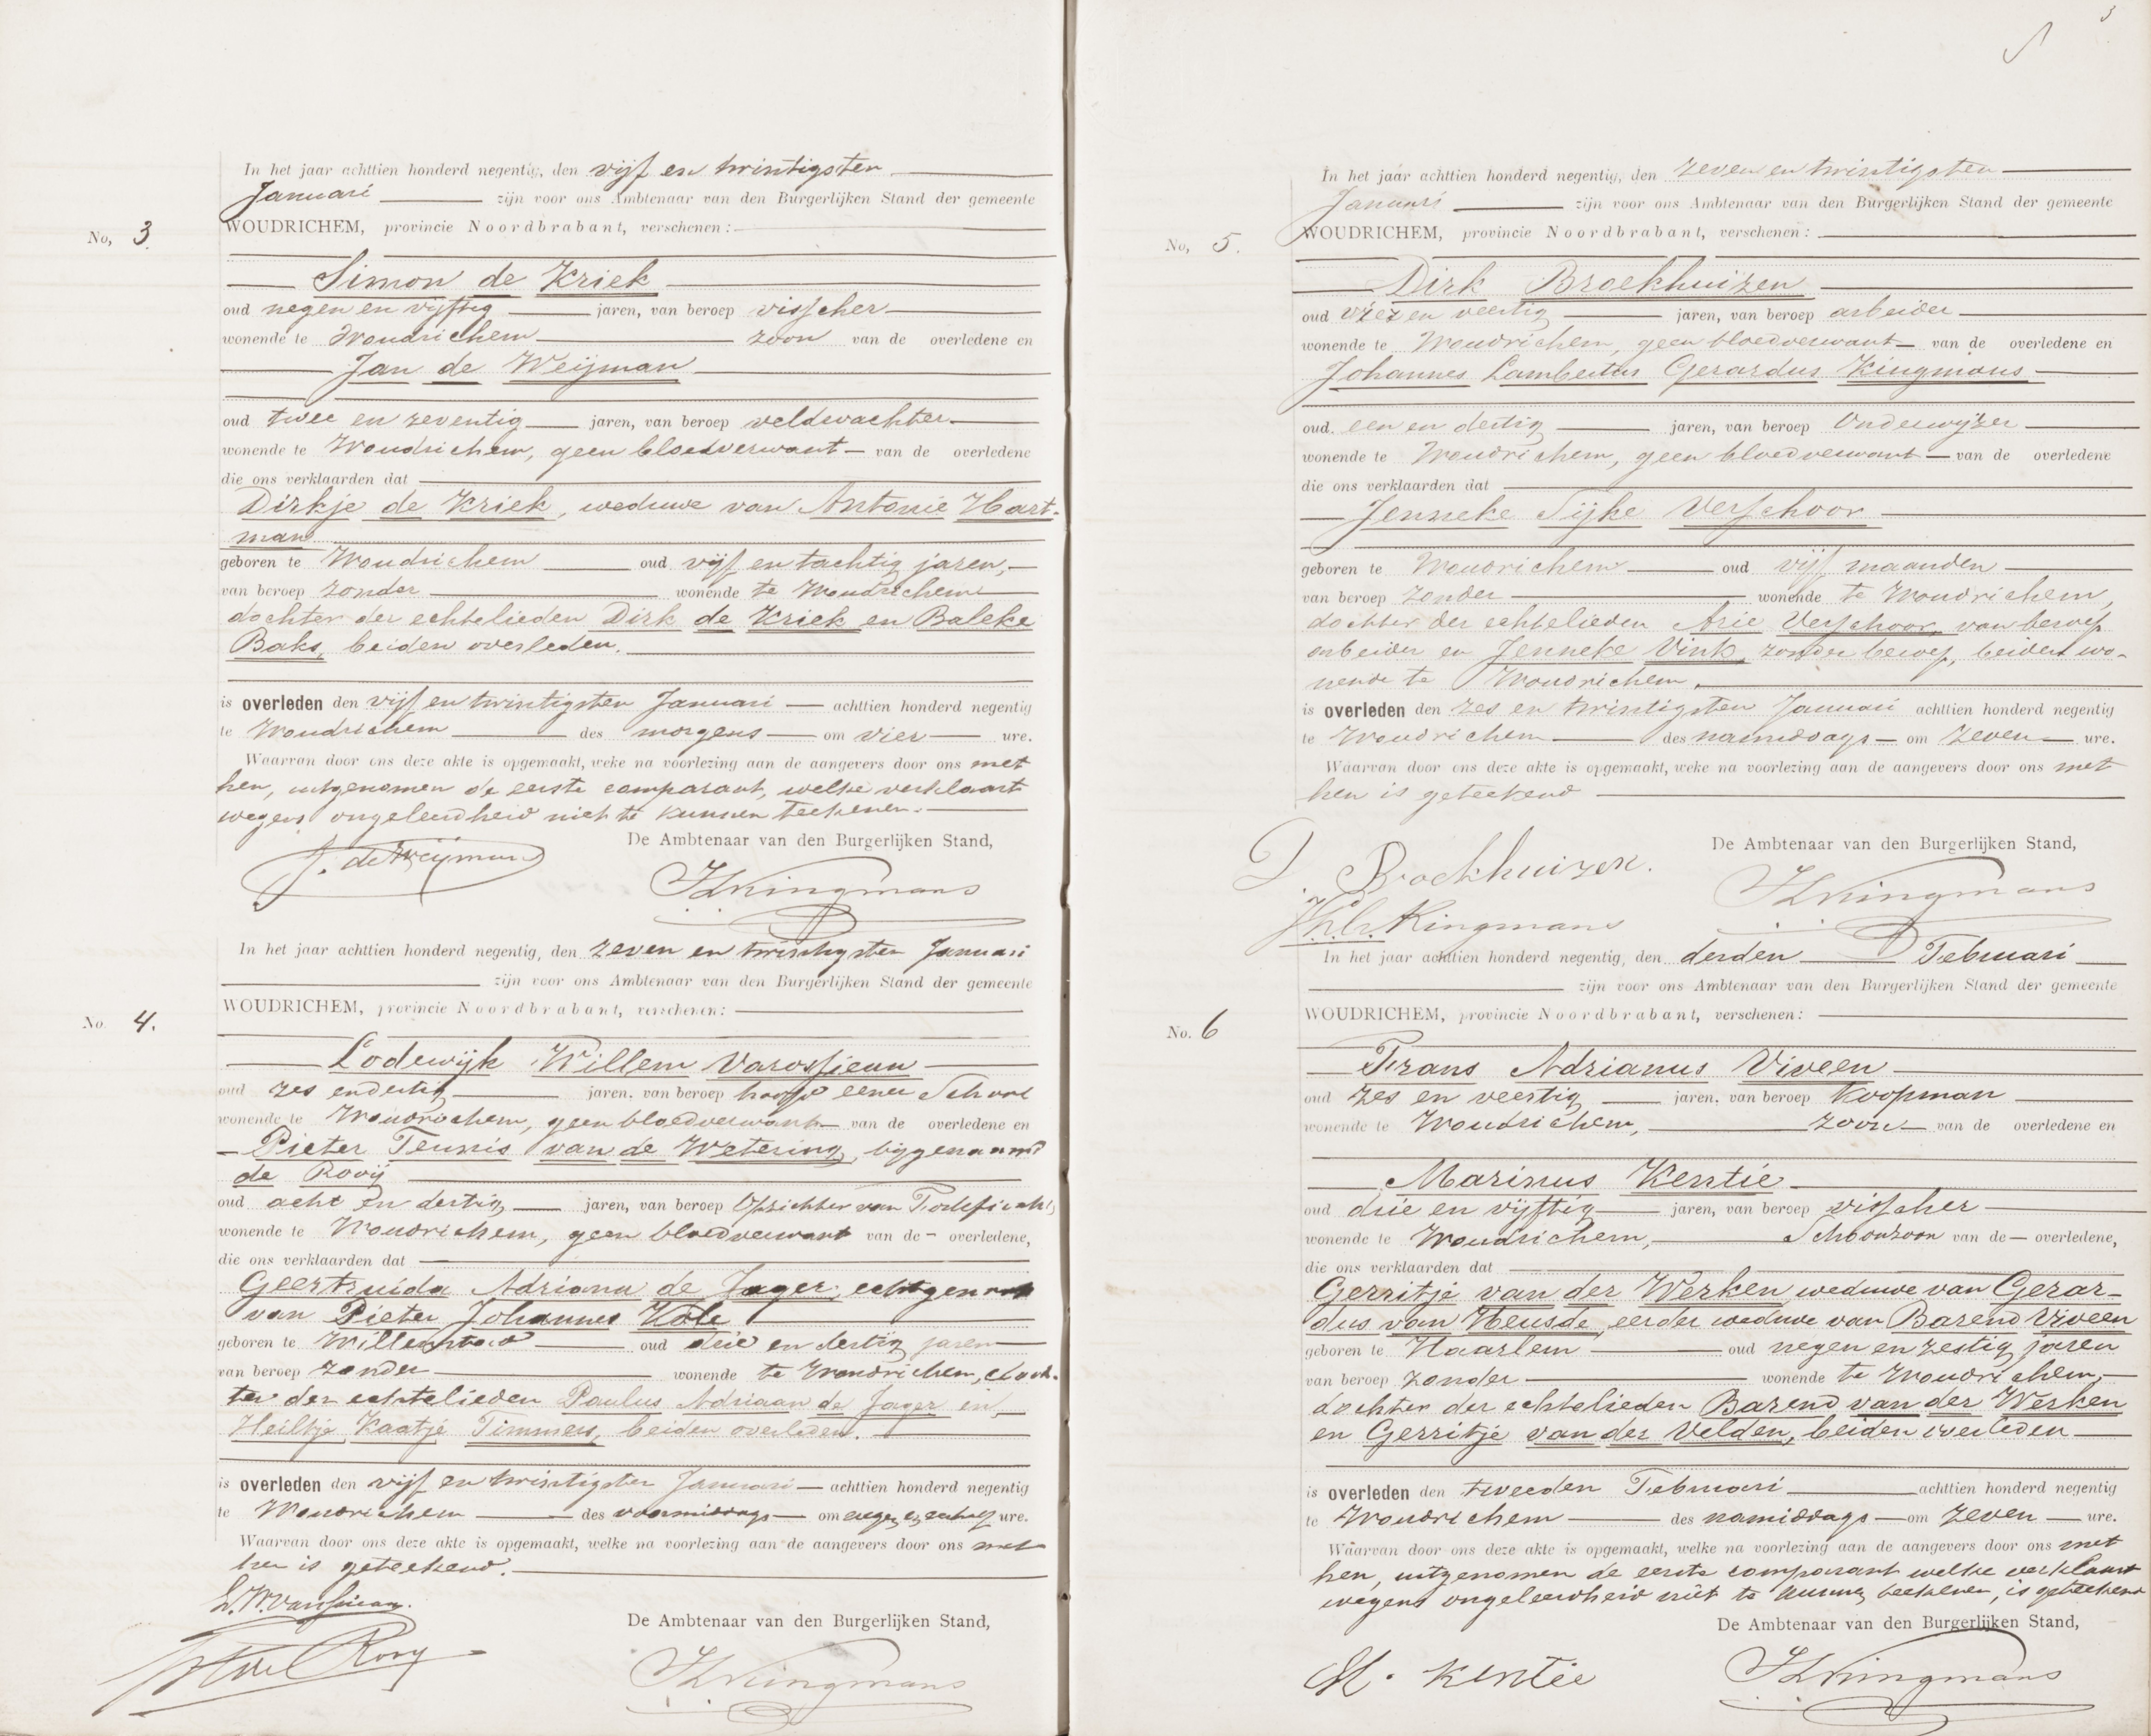 In het jaar achttien honderd negentig, den vijf en twintigsten
Januari zijn voor ons Ambtenaar van den Burgerlijken Stand der gemeente
WOUDRICHEM, provincie Noordbrabant, verschenen:
No, 3.
Simon de Kriek
oud negen en vijftig jaren, van beroep visscher
wonende te Woudrichem zoon van de overledene en
Jan de Weijman
oud twee en zeventig jaren, van beroep veldwachter
wonende te Woudrichem, geen bloedverwant van de overledene
die ons verklaarden dat
Dirkje de Kriek, weduwe van Antonie Hart-
man
geboren te Woudrichem oud vijf en tachtig jaren,
van beroep zonder wonende te Woudrichem
dochter der echtelieden Dirk de Kriek en Baleke
Baks, beiden overleden.
is overleden den vijf en twintigsten Januari achttien honderd negentig
te Woudrichem des morgens om vier ure.
Waarvan door ons deze akte is opgemaakt, weke na voorlezing aan de aangevers door ons met
hen, uitgenomen de eerste comparant, welke verklaart
wegens ongeleerdheid niet te kunnen teekenen.
De Ambtenaar van den Burgerlijken Stand,
J. de Weijman
Kingmans
In het jaar achttien honderd negentig, den zeven en twintigsten Januari
zijn voor ons Ambtenaar van den Burgerlijken Stand der gemeente
WOUDRICHEM, provincie Noordbrabant, verschenen:
No. 4.
Lodewijk Willem Varossieau
oud zes en dertig jaren, van beroep hoofd eener School
wonende te Woudrichem, geen bloedverwant van de overledene en
Pieter Teunis van de Wetering, bijgenaamd
de Rooij
oud acht en dertig jaren, van beroep Opzichter van Fortificatie
wonende te Woudrichem, geen bloedverwant van de overledene,
die ons verklaarden dat
Geertruida Adriana de Jager, echtgenoot
van Pieter Johannes Kole
geboren te Willemstad oud drie en dertig jaren
van beroep zonder wonende te Woudrichem, doch-
ter der echtelieden Paulus Adriaan de Jager en
Heiltje Kaatje Timmers, beiden overleden.
is overleden den vijf en twintigsten Januari achttien honderd negentig
te Woudrichem des voormiddags om negen en half ure.
Waarvan door ons deze akte is opgemaakt, welke na voorlezing aan de aangevers door ons met
hen is geteekend.
L. W. Varossieau.
De Ambtenaar van den Burgerlijken Stand,
Rooy
Kingmans
3
In het jaar achttien honderd negentig, den zeven en twintigsten
Januari zijn voor ons Ambtenaar van den Burgerlijken Stand der gemeente
WOUDRICHEM, provincie Noordbrabant, verschenen:
No, 5.
Dirk Broekhuizen
oud vier en veertig jaren, van beroep arbeider
wonende te Woudrichem, geen bloedverwant van de overledene en
Johannes Lambertus Gerardus Kingmans
oud een en dertig jaren, van beroep Onderwijzer
wonende te Woudrichem, geen bloedverwant van de overledene
die ons verklaarden dat
Jenneke Sijke Verschoor
geboren te Woudrichem oud vijf maanden
van beroep zonder wonende te Woudrichem,
dochter der echtelieden Arie Verschoor, van beroep
arbeider en Jenneke Vink, zonder beroep, beiden wo-
nende te Woudrichem.
is overleden den zes en twintigsten Januari achttien honderd negentig
te Woudrichem des namiddags om zeven ure.
Waarvan door ons deze akte is opgemaakt, weke na voorlezing aan de aangevers door ons met
hen is geteekend
De Ambtenaar van den Burgerlijken Stand,
D. Broekhuizen.
Kingmans
Kingmans
In het jaar achttien honderd negentig, den derden Februari
zijn voor ons Ambtenaar van den Burgerlijken Stand der gemeente
WOUDRICHEM, provincie Noordbrabant, verschenen:
No. 6
Frans Adrianus Viveen
oud zes en veertig jaren, van beroep Koopman
wonende te Woudrichem, zoon van de overledene en
Marinus Kentie
oud drie en vijftig jaren, van beroep visscher
wonende te Woudrichem, Schoonzoon van de overledene,
die ons verklaarden dat
Gerritje van der Werken weduwe van Gerar-
dus van Heusde, eerder weduwe van Barend Viveen
geboren te Haarlem oud negen en zestig jaren
van beroep zonder wonende te Woudrichem,
dochter der echtelieden Barend van der Werken
en Gerritje van der Velden, beiden overleden
is overleden den tweeden Februari achttien honderd negentig
te Woudrichem des namiddags om zeven ure.
Waarvan door ons deze akte is opgemaakt, welke na voorlezing aan de aangevers door ons met
hen, uitgenomen de eerste comparant welke verklaart
wegens ongeleerdheid niet te kunnen teekenen, is geteekend
De Ambtenaar van den Burgerlijken Stand,
M. Kentie
Kingmans